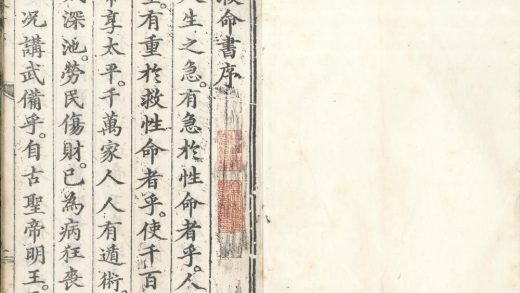 救命書序
人生之急。有急於性命者乎。人
生。有重於救性命者乎。使千百
享太平。千萬家人人有遁術。
深池。勞民傷財。已為病狂喪
況講武備乎。自古聖帝明王。